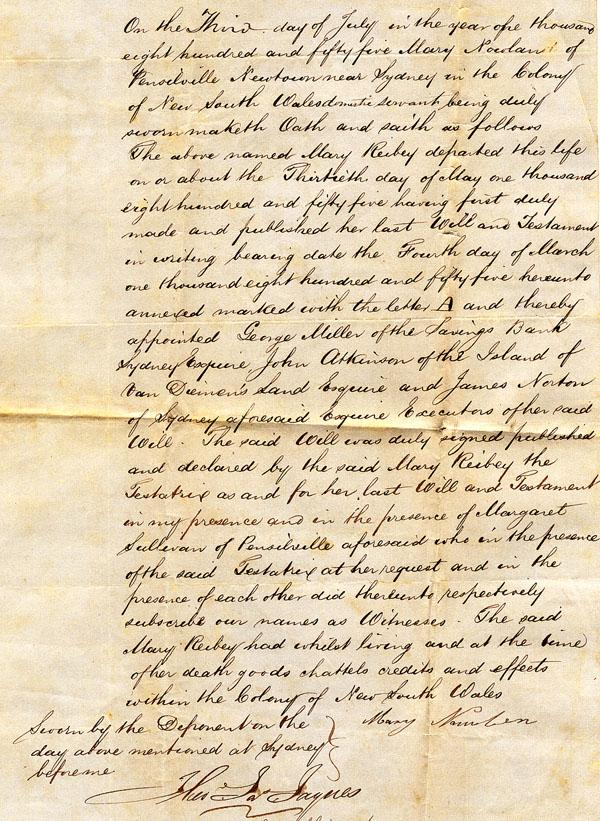 On the Third day of July in the year one thousand
eight hundred and fifty five Mary Nowlan of
Pensilville Newtown near Sydney in the Colony
of New South Wales domestic servant being duly
sworn maketh Oath and saith as follows
The above named Mary Reibey departed this life
on or about the Thirtieth day of May one thousand
eight hundred and fifty five having first duly
made and published her last Will and Testament
in writing bearing date the Fourth day of March
one thousand eight hundred and fifty five hereunto
annexed marked with the letter A and thereby
appointed George Miller of the Savings Bank
Sydney Esquire John Atkinson of the Island of
Van Diemens Land Esquire and James Norton
of Sydney aforesaid Esquire Executors of her said
Will - The said Will was duly signed published
and declared by the said Mary Reibey the
Testatrix as and for her last Will and Testament
in my presence and in the presence of Margaret
Sullivan of Pensilville aforesaid who in the presence
of the said Testatrix at her request and in the
presence of each other did thereunto respectively
subscribe our names as Witnesses - The said
Mary Reibey had whilst living and at the time
of her death goods chattels credits and effects
within the Colony of New South Wales
Sworn by the Deponent on the } Mary
day above mentioned at Sydney
before me
Jaques